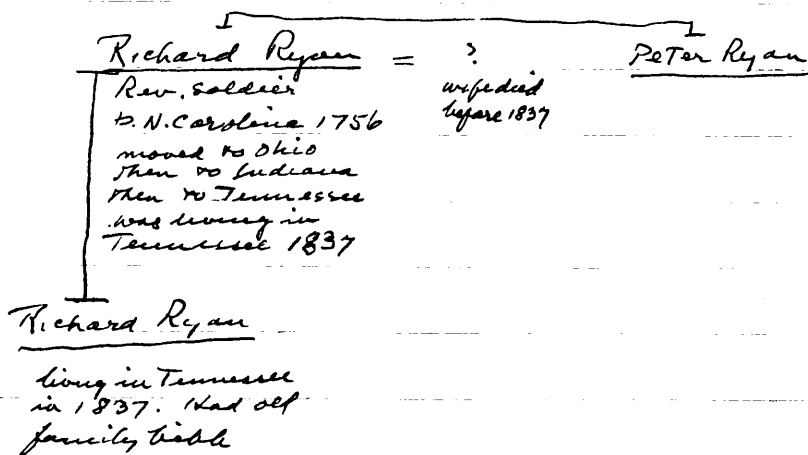 Richard Ryan = ? Peter Ryan
Rev. Soldier
b. N. Carolina 1756
moved to Ohio
then to Indiana
then to Tennessee
was living in
Tennessee 1837
wife died
before 1837
Richard Ryan
living in Tennessee
in 1837. Had old
family bible